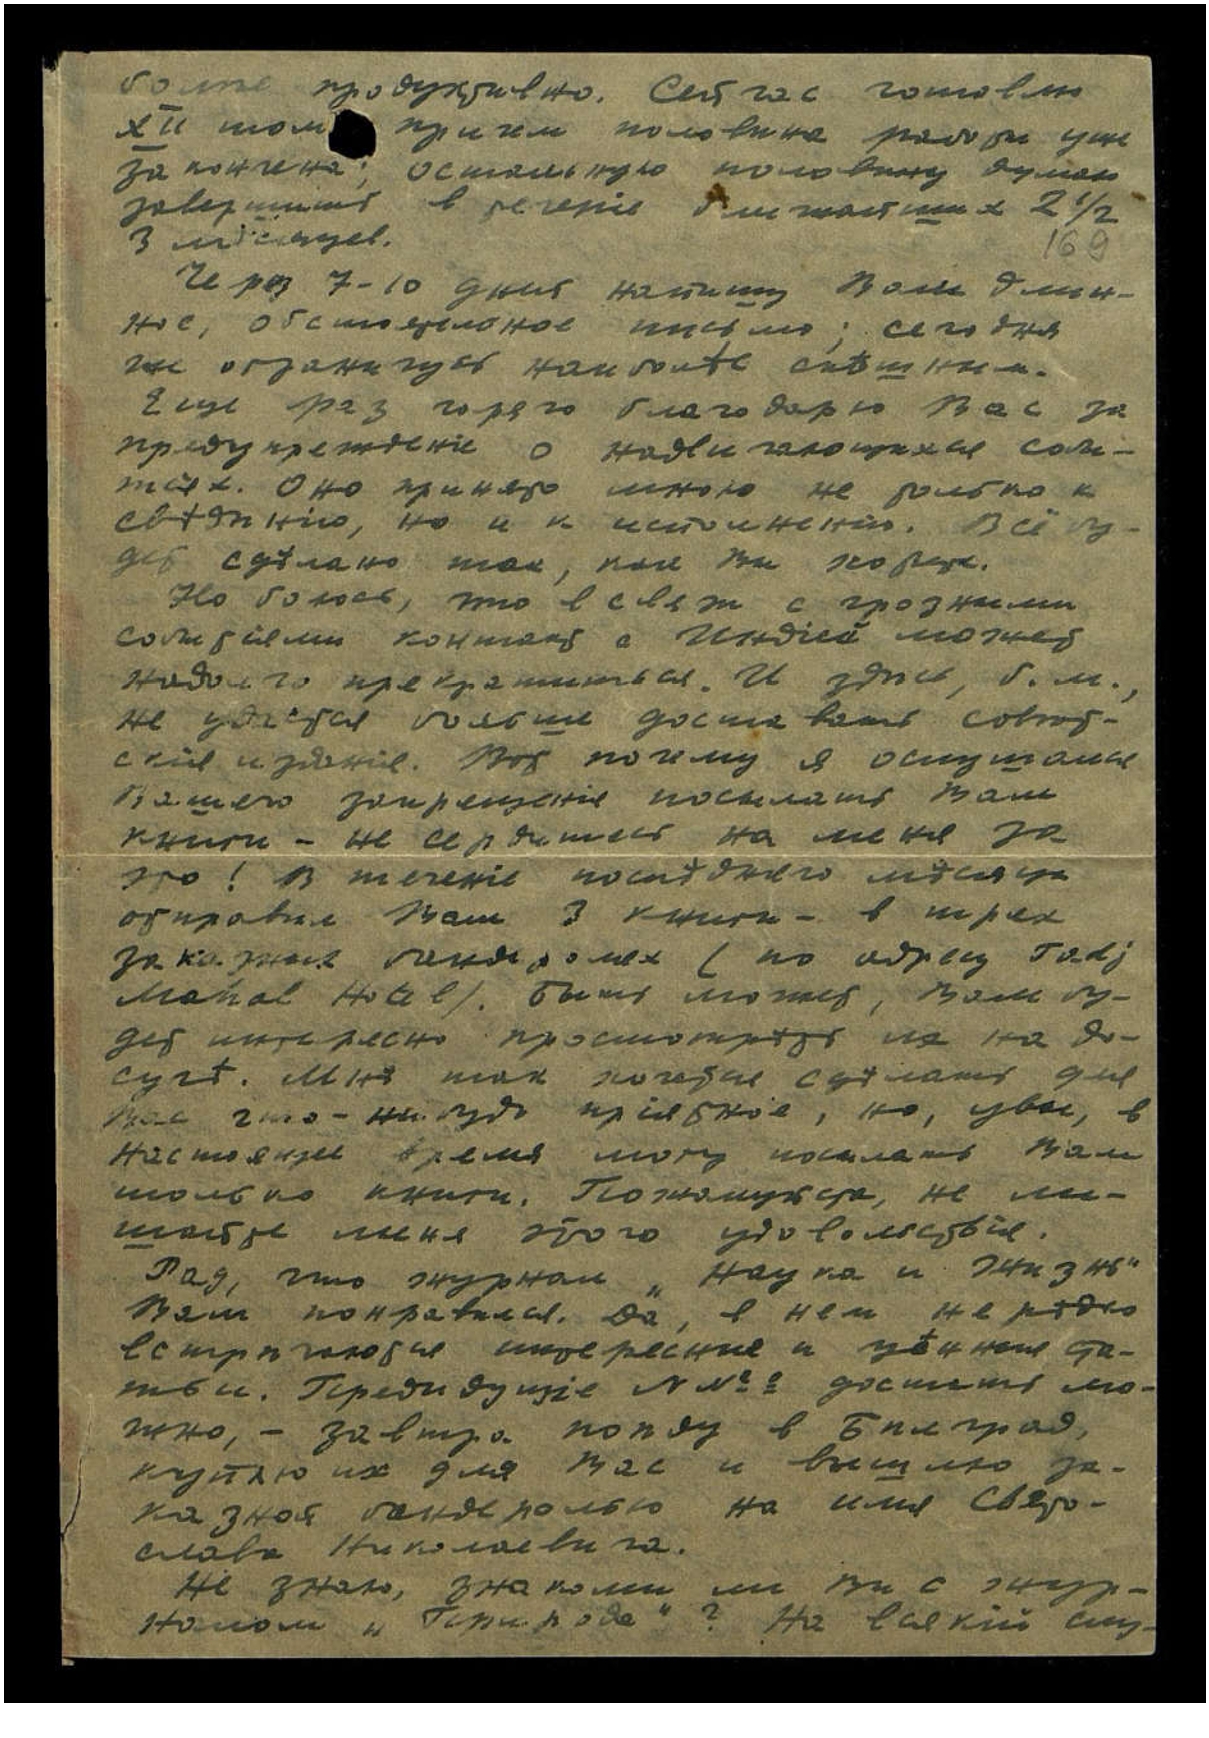 более продуктивно. Сейчас готовлю
XII том причем половина работы уже
закончена; остальную половину думаю
завершить в течение ближайших 2 1/2
3 мѣсяцев.
169
Через 7-10 дней напишу Вам длин-
ное, обстоятельное письмо; сегодня
же ограничусь наиболѣе спѣшным.
Еще раз горячо благодарю Вас за
предупрежденіе о надвигающихся собы-
тіях. Оно принято мною не только к
свѣдѣнію, но и к исполненію. Всё бу-
дет сдѣлано так, как Вы хотите.
Но боюсь, что в связи с грозными
событіями контакт с Индіей может
надолго прекратиться. И здѣсь, б.м.,
не удастся больше доставать совѣт-
скія изданія. Вот почему я ослушался
Вашего запрещенія посылать Вам
книги - не сердитесь на меня за
это! В теченіе послѣдняго мѣсяца
отправил Вам 3 книги - в трех
заказных бандеролях (по адресу Tadj
Mahal Hotel). Быть может, Вам бу-
дет интересно просмотрѣть их на до-
сугѣ. Мнѣ так хочется сдѣлать для
Вас что-нибудь пріятное, но, увы, в
настоящее время могу посылать Вам
только книги. Пожалуйста, не ли-
шайте меня этого удовольствія.
Рад, что журнал „Наука и Жизнь"
Вам понравился. Да, в нем нерѣдко
встрѣчаются интересные и цѣнные ста-
тьи. Предыдущіе №№ достать мо-
жно, - завтра поѣду в Бѣлград,
куплю их для Вас и вышлю за-
казной бандеролью на имя Свято-
слава Николаевича.
Не знаю, знакомы ли Вы с жур-
налом „Природа"? На всякій слу-